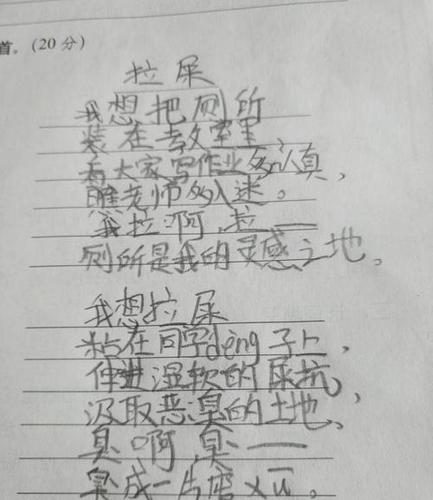 首。(20分)
拉屎
我想把厕所
装在教室里
看大家写作业多认真,
瞧老师多入迷。
我拉啊,拉——
厕所是我的灵感之地。
我想拉屎
粘在同学dèng子上,
伸进湿软的屎坑,
汲取恶臭的土地,
臭啊,臭——
臭成一片